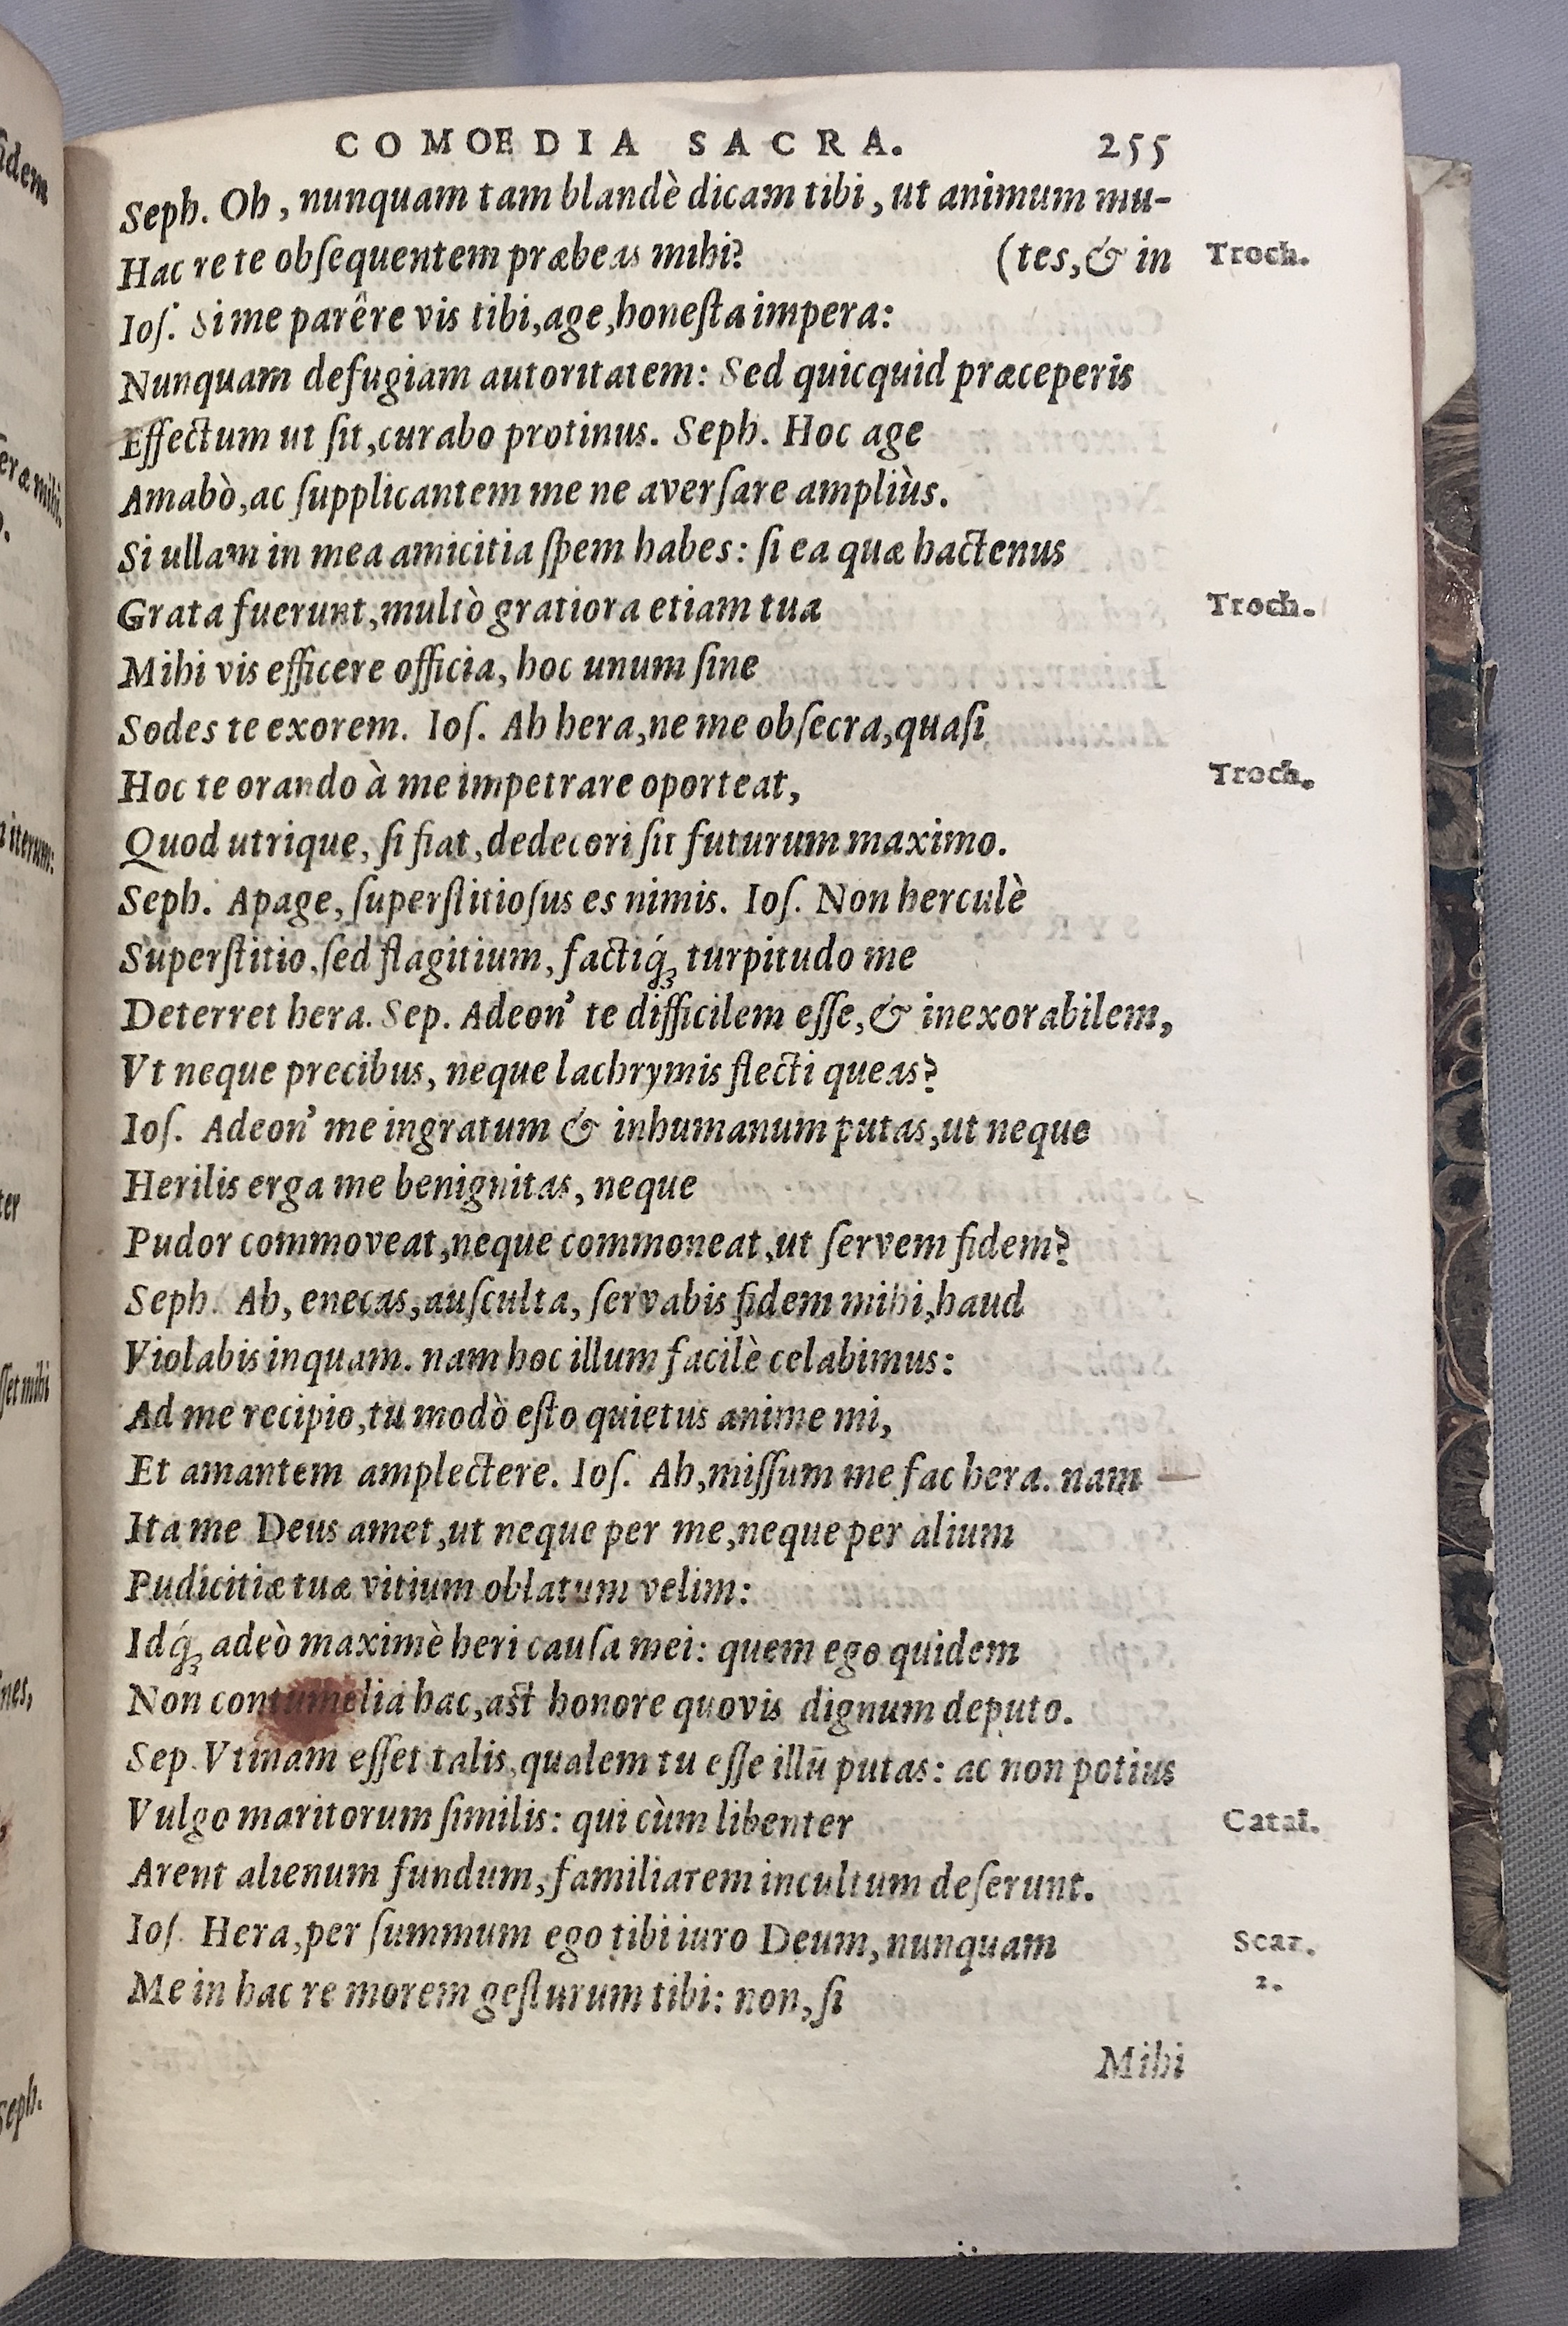 COMOEDIA SACRA. 255
Seph. Oh, nunquam tam blandè dicam tibi, ut animum mu-
Hac re te obſequentem præbeas mihi? (tes, & in Troch.
Ioſ. Si me parêre vis tibi, age, honeſta impera:
Nunquam defugiam autoritatem: Sed quicquid præceperis
Effectum ut ſit, curabo protinus. Seph. Hoc age
Amabò, ac ſupplicantem me ne averſare ampliùs.
Si ullam in mea amicitia ſpem habes: ſi ea quæ hactenus
Grata fuerunt, multò gratiora etiam tua Troch.
Mihi vis efficere officia, hoc unum ſine
Sodes te exorem. Ioſ. Ah hera, ne me obſecra, quaſi
Hoc te orando à me impetrare oporteat, Troch.
Quod utrique, ſi fiat, dedecori ſit futurum maximo.
Seph. Apage, ſuperſtitioſus es nimis. Ioſ. Non herculè
Superſtitio, ſed flagitium, factiq́ꝫ turpitudo me
Deterret hera. Sep. Adeon' te difficilem eſſe, & inexorabilem,
Vt neque precibus, neque lachrymis flecti queas?
Ioſ. Adeon' me ingratum & inhumanum putas, ut neque
Herilis erga me benignitas, neque
Pudor commoveat, neque commoneat, ut ſervem fidem?
Seph. Ah, enecas, auſculta, ſervabis fidem mihi, haud
Violabis inquam. nam hoc illum facilè celabimus:
Ad me recipio, tu modò eſto quietus anime mi,
Et amantem amplectere. Ioſ. Ah, miſſum me fac hera. nam
Ita me Deus amet, ut neque per me, neque per alium
Pudicitiæ tuæ vitium oblatum velim:
Idq́ꝫ adeò maximè heri cauſa mei: quem ego quidem
Non contumelia hac, aſt honore quovis dignum deputo.
Sep. Vtinam eſſet talis, qualem tu eſſe illū putas: ac non potius
Vulgo maritorum ſimilis: qui cùm libenter Catal.
Arent alienum fundum, familiarem incultum deſerunt.
Ioſ. Hera, per ſummum ego tibi iuro Deum, nunquam Scaz.
Me in hac re morem geſturum tibi: non, ſi 2.
Mihi